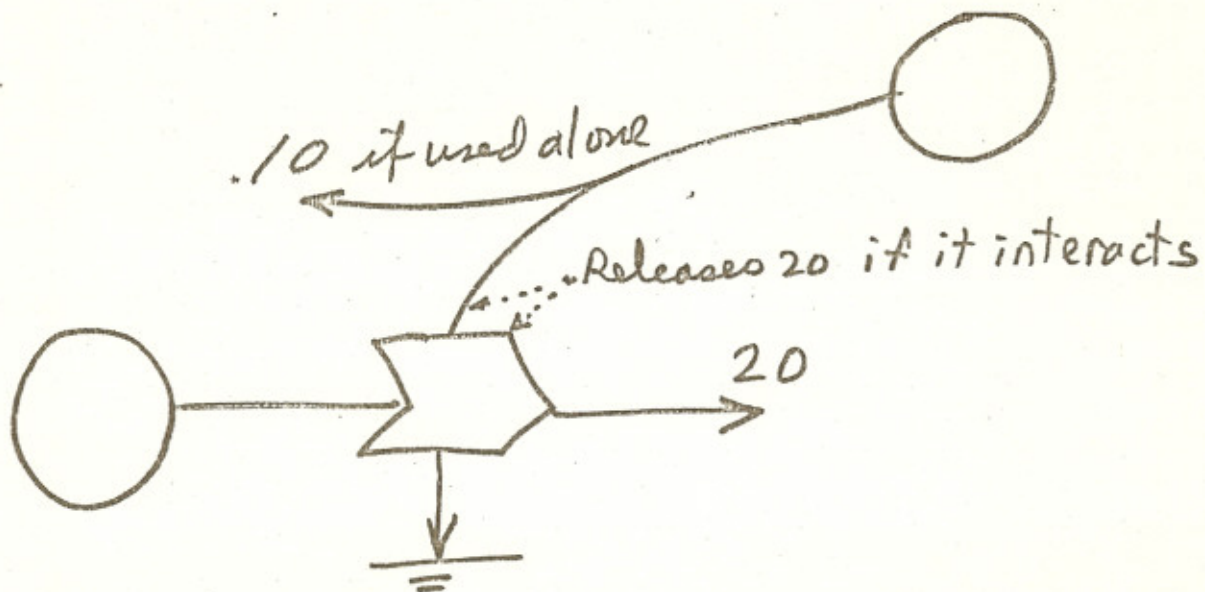 .10 if used alone
Releases 20 if it interacts
20